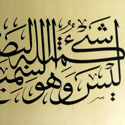 ليس كمثله شيء وهو السميع البصير